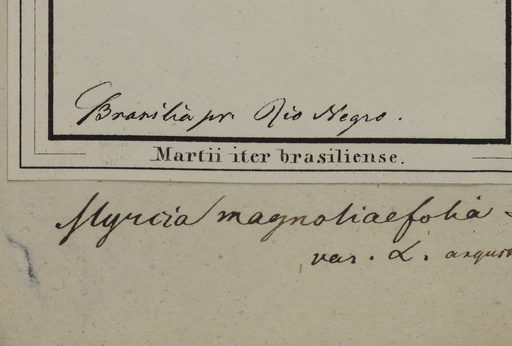 Brasilia pr. Rio Negro.
Martii iter brasiliense.
Myrcia magnoliaefolia
var. α.